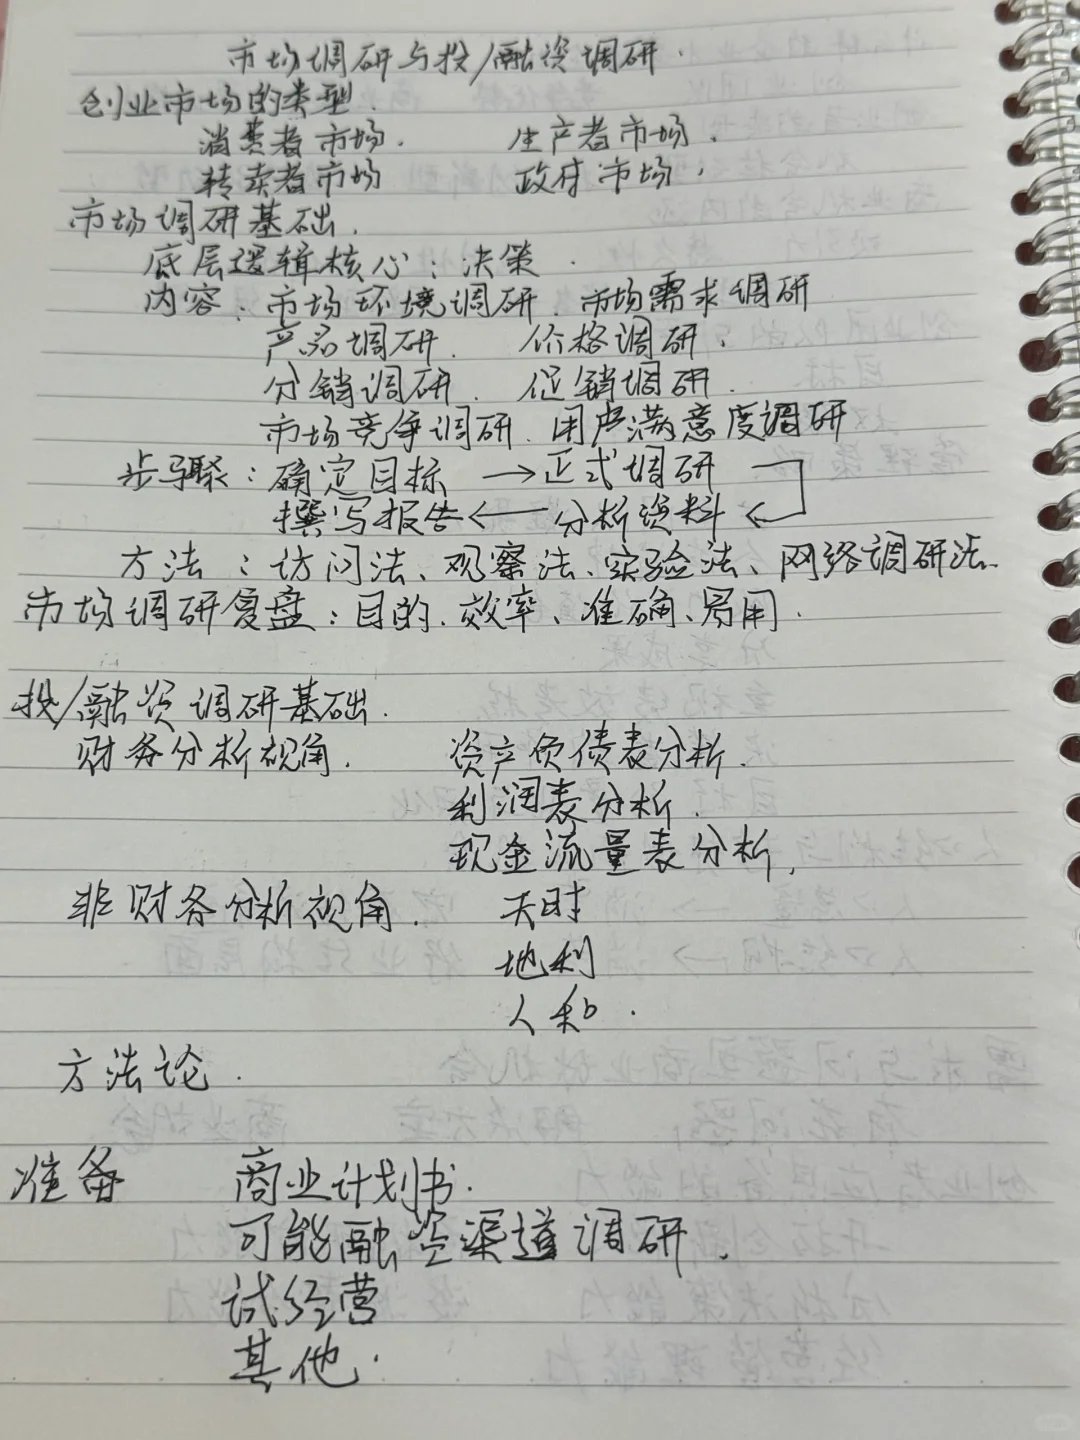 市场调研与投/融资调研.
创业市场的类型.
消费者市场. 生产者市场.
转卖者市场 政府市场.
市场调研基础.
底层逻辑核心:决策.
内容:市场环境调研.市场需求调研
产品调研. 价格调研.
分销调研. 促销调研.
市场竞争调研.用户满意度调研
步骤:确定目标→正式调研
撰写报告←分析资料←
方法:访问法、观察法、实验法、网络调研法.
市场调研复盘:目的、效率、准确、易用.
投/融资调研基础.
财务分析视角. 资产负债表分析.
利润表分析.
现金流量表分析.
非财务分析视角. 天时
地利
人和.
方法论.
准备 商业计划书.
可能融资渠道调研.
试经营
其他.